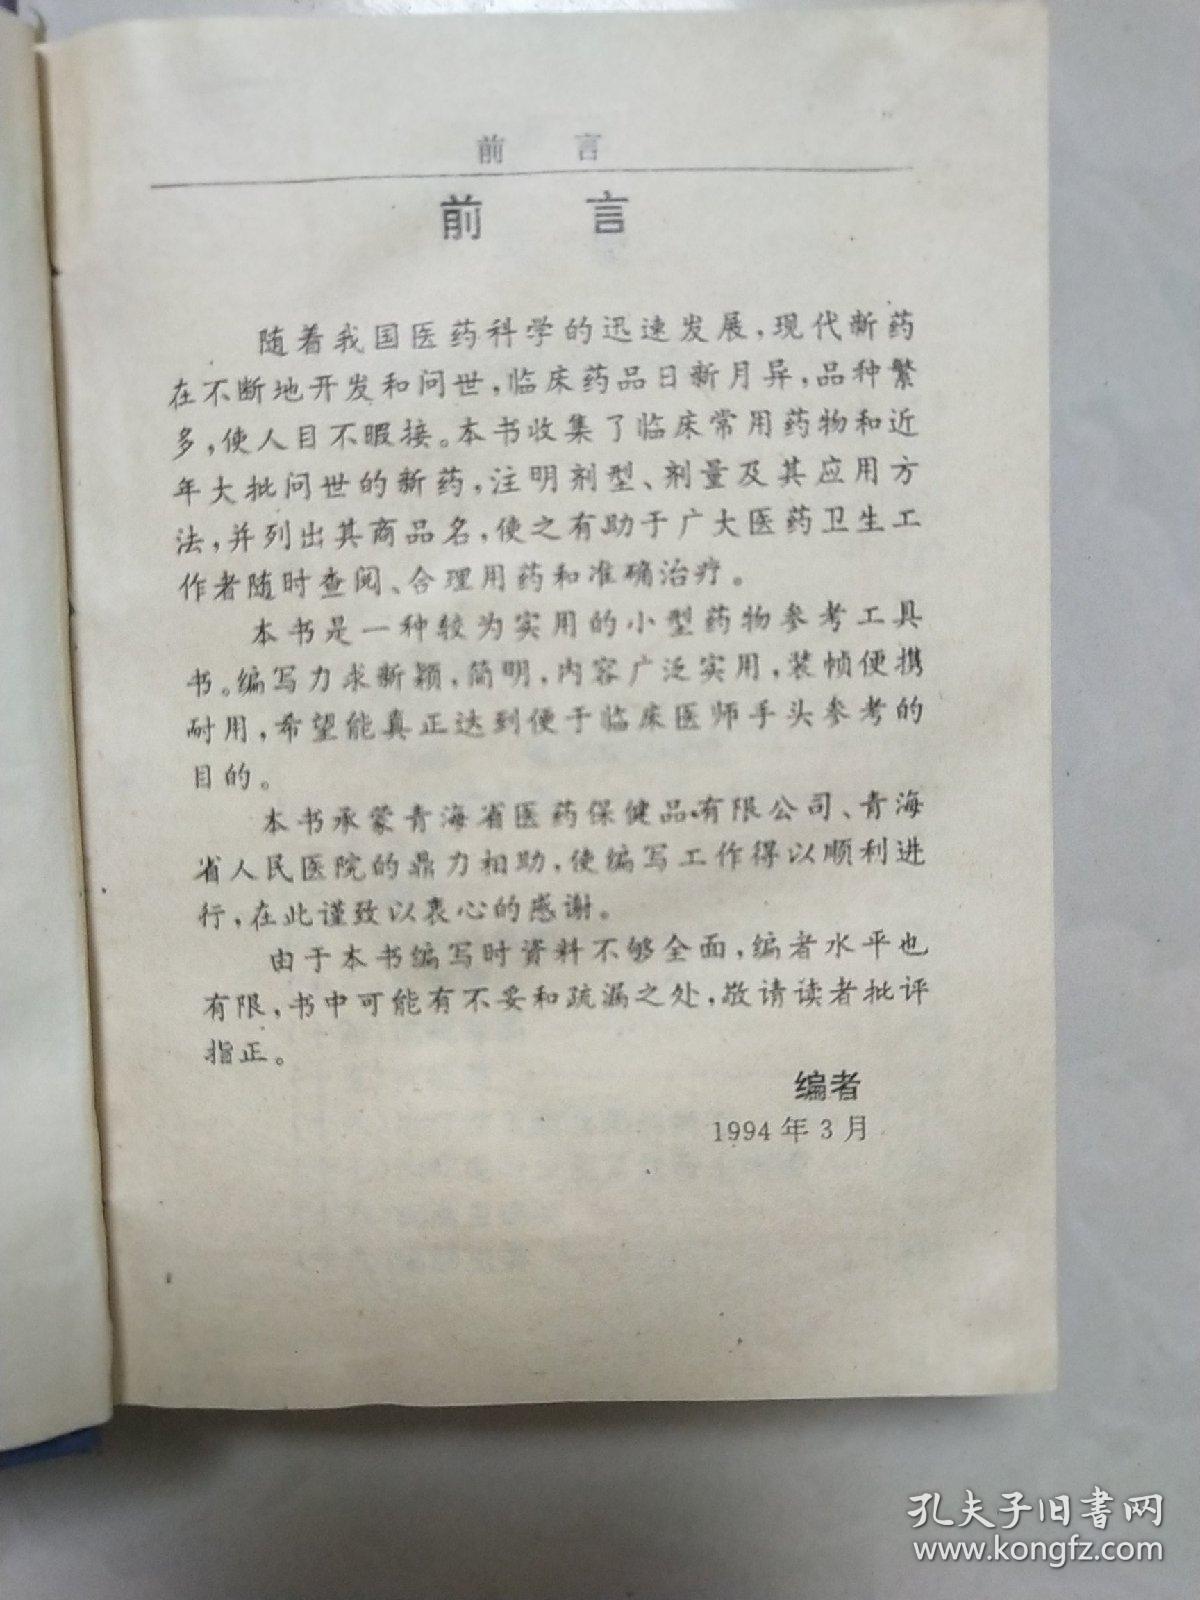 前 言
前 言
随着我国医药科学的迅速发展，现代新药
在不断地开发和问世，临床药品日新月异，品种繁
多，使人目不暇接。本书收集了临床常用药物和近
年大批问世的新药，注明剂型、剂量及其应用方
法，并列出其商品名，使之有助于广大医药卫生工
作者随时查阅、合理用药和准确治疗。
本书是一种较为实用的小型药物参考工具
书。编写力求新颖，简明，内容广泛实用，装帧便携
耐用，希望能真正达到便于临床医师手头参考的
目的。
本书承蒙青海省医药保健品有限公司、青海
省人民医院的鼎力相助，使编写工作得以顺利进
行，在此谨致以衷心的感谢。
由于本书编写时资料不够全面，编者水平也
有限，书中可能有不妥和疏漏之处，敬请读者批评
指正。
编者
1994年3月
孔夫子旧书网
www.kongfz.com